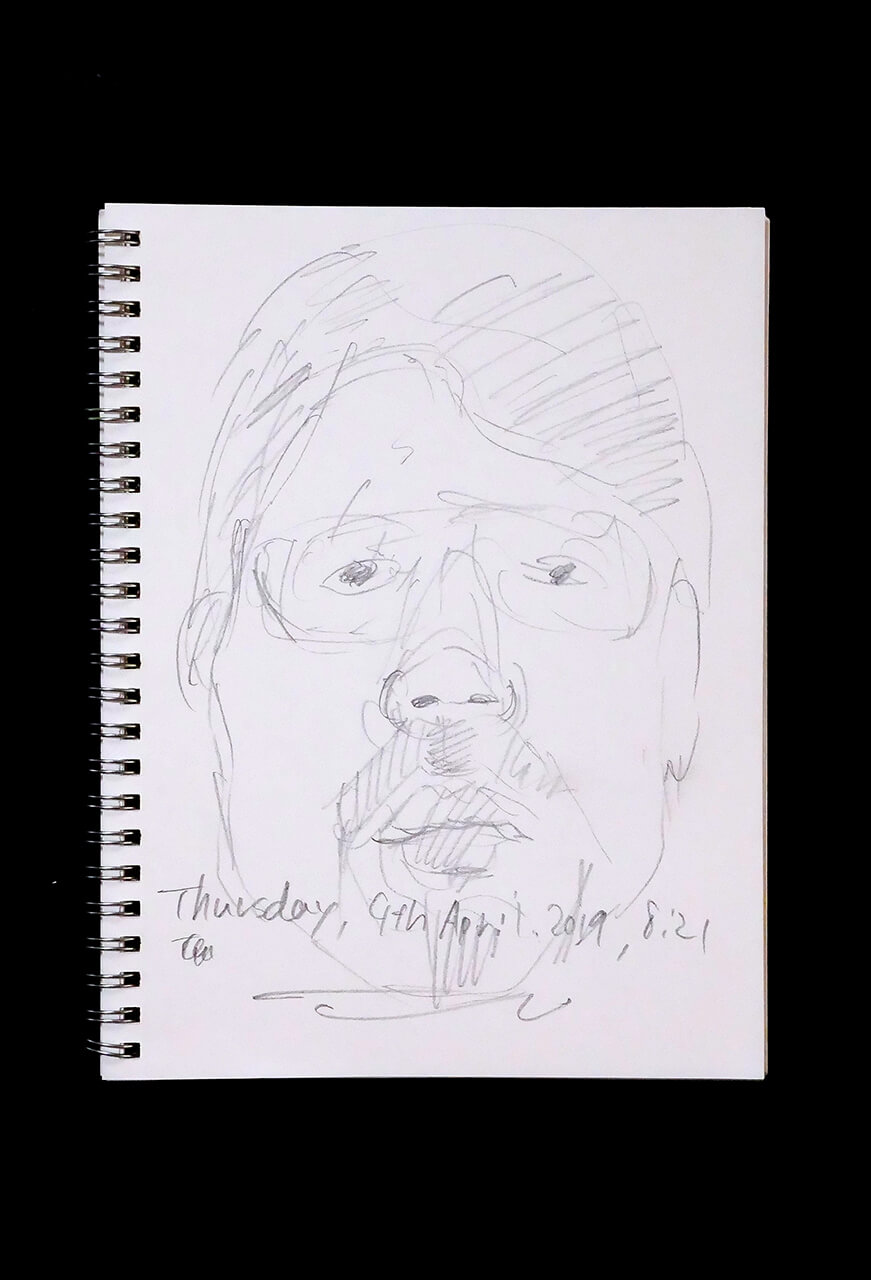 Thursday, 4th April. 2019, 8:21